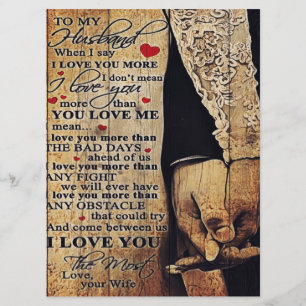 TO MY
Husband
When I say
I LOVE YOU MORE
I don't mean
I love you
more than
YOU LOVE ME
mean...
love you more than
THE BAD DAYS
ahead of us
love you more than
ANY FIGHT
we will ever have
love you more than
ANY OBSTACLE
that could try
And come between us
I LOVE YOU
The Most
Love,
your Wife